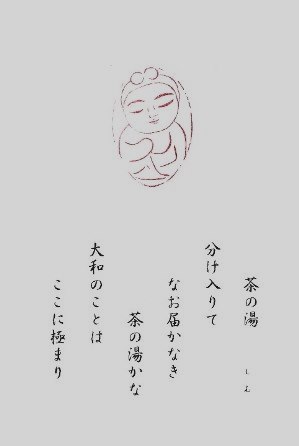 茶の湯
しむ
分け入りて
なお届かなき
茶の湯かな
大和のことは
ここに極まり